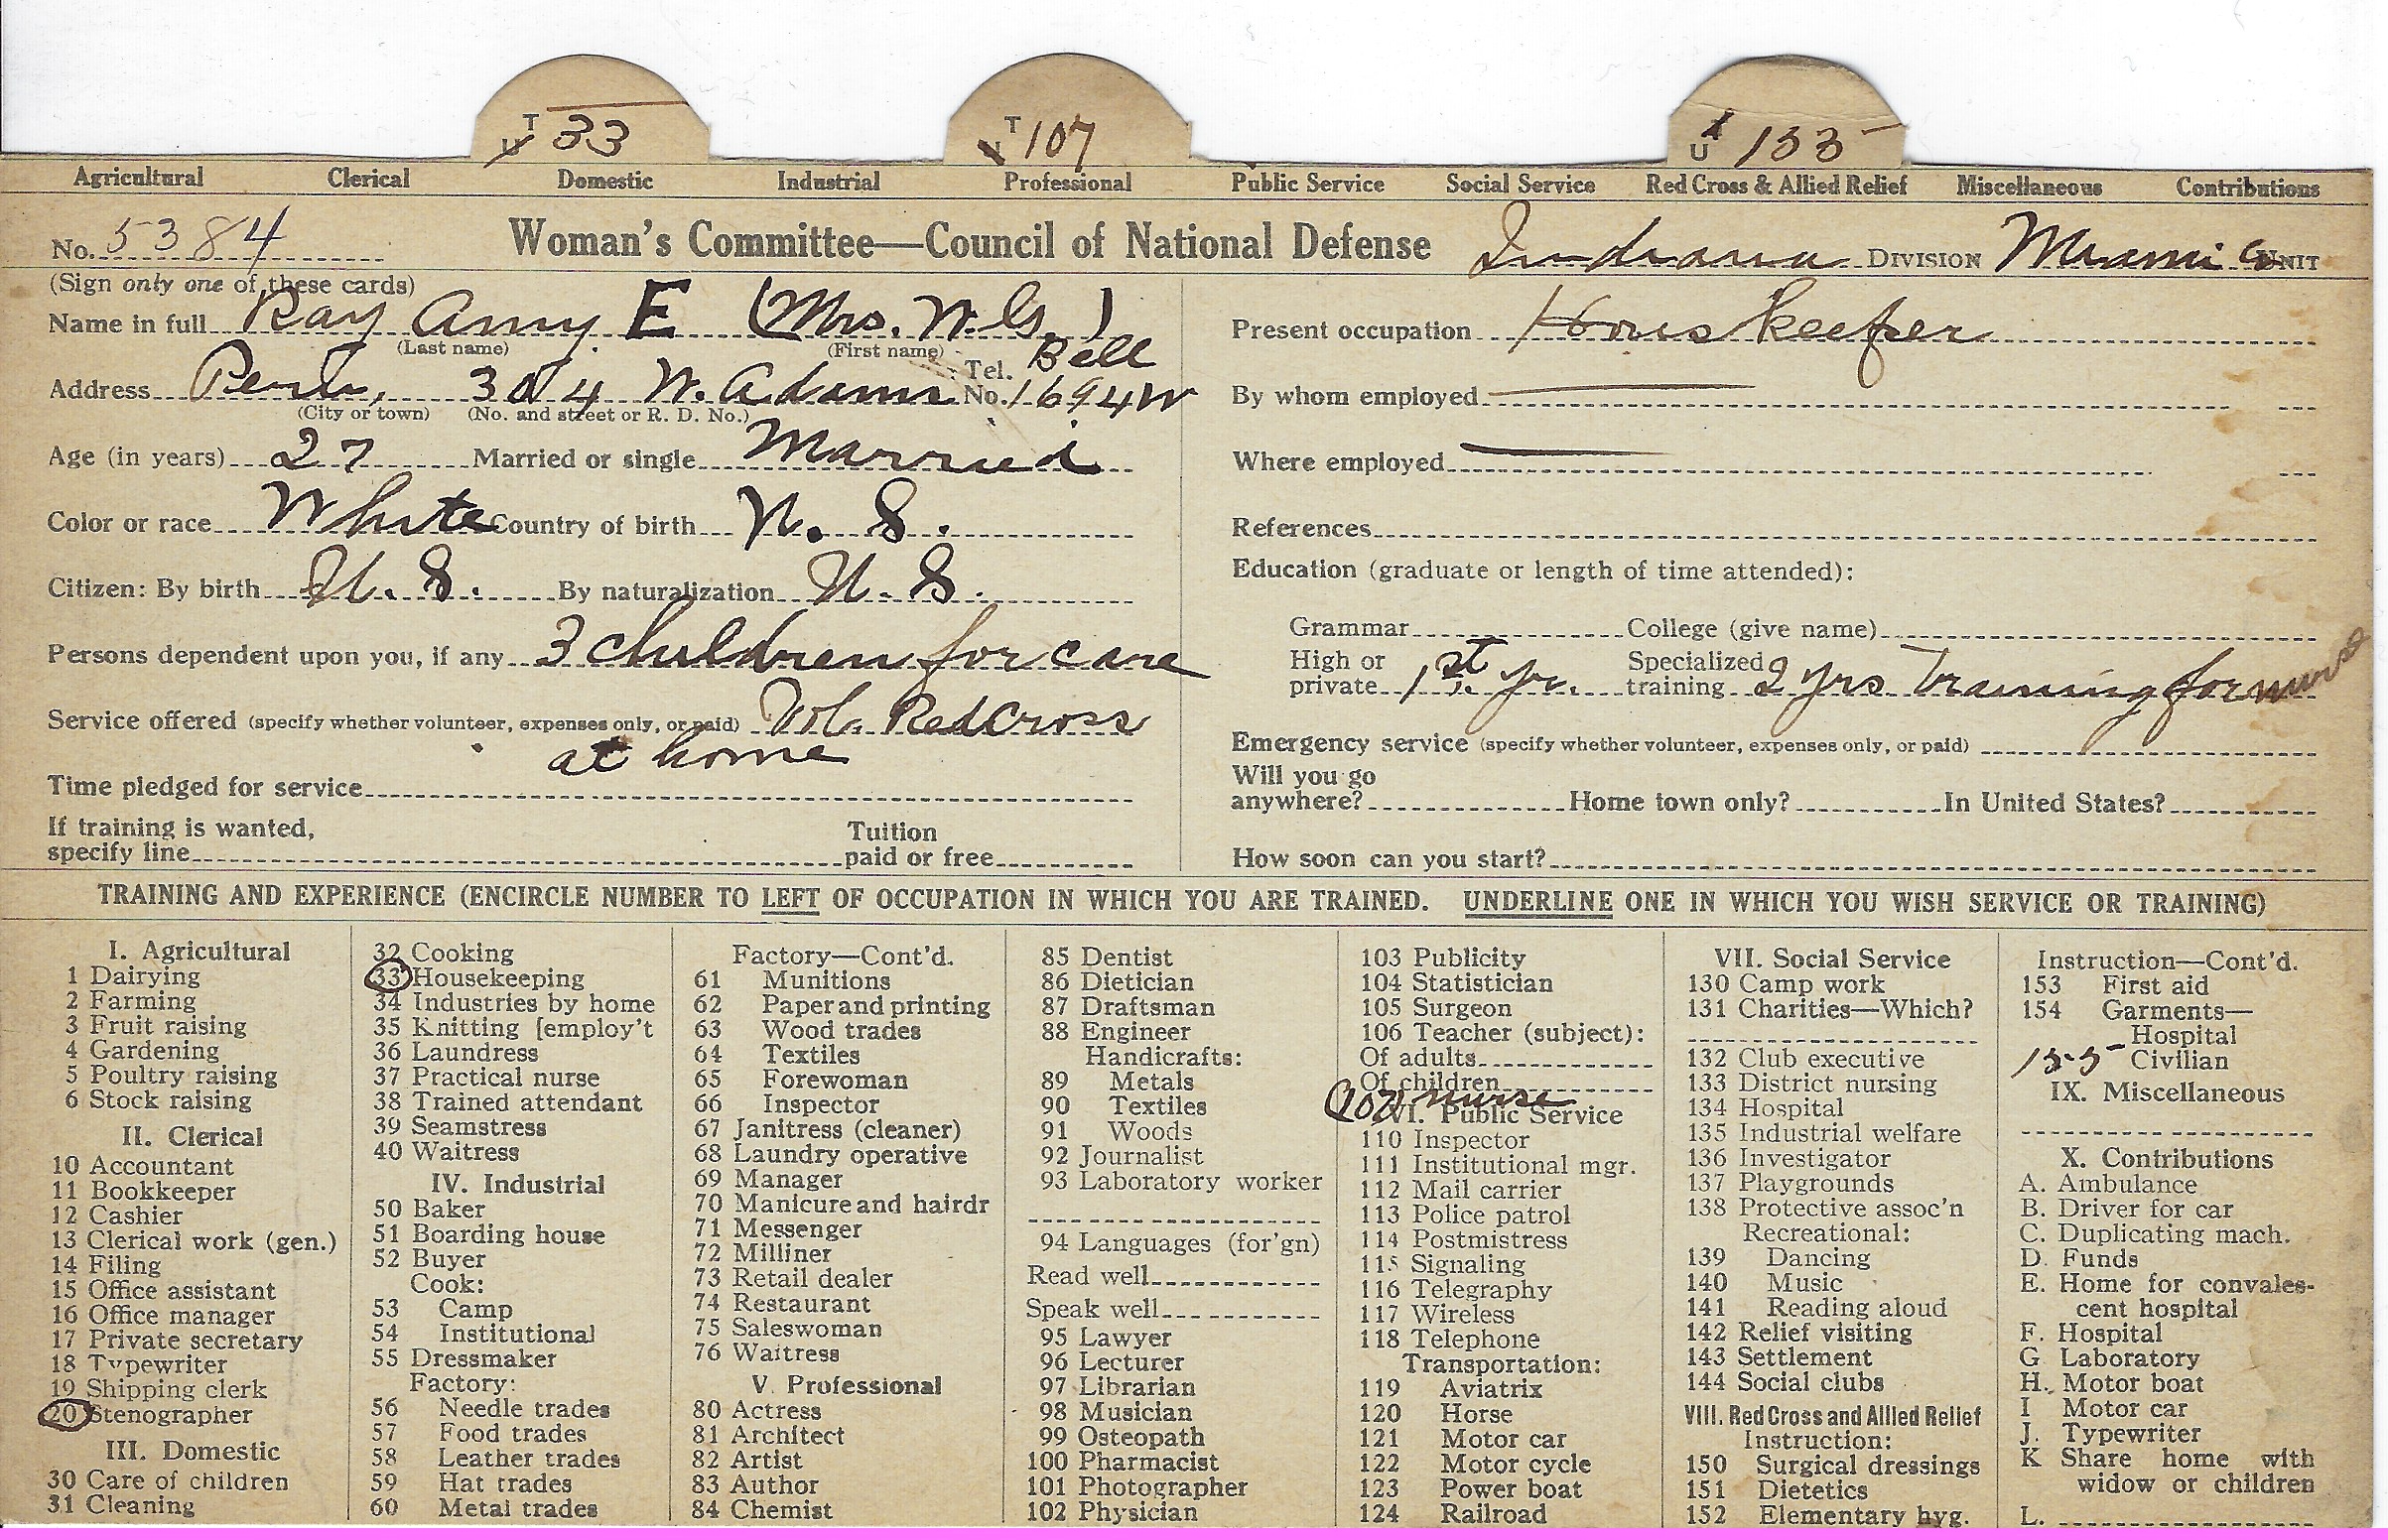 T U 33
T 107
U 155
Agricultural Clerical Domestic Industrial Professional Public Service Social Service Red Cross & Allied Relief Miscellaneous Contributions
No. 5384 Woman's Committee—Council of National Defense Indiana DIVISION Miami Co UNIT
(Sign only one of these cards)
Name in full Ray Amy E (Mrs. W. G.)
(Last name) (First name)
Address Peru, 304 W. Adams Tel. No. Bell 1694W
(City or town) (No. and street or R. D. No.)
Age (in years) 27 Married or single Married
Color or race White Country of birth U. S.
Citizen: By birth U. S. By naturalization U. S.
Persons dependent upon you, if any 3 children for care
Service offered (specify whether volunteer, expenses only, or paid) Vol. Red Cross
at home
Time pledged for service
If training is wanted,
specify line Tuition paid or free
Present occupation Houskeeper
By whom employed
Where employed
References
Education (graduate or length of time attended):
Grammar College (give name)
High or private 1st yr. Specialized training 2 yrs Training for nurse
Emergency service (specify whether volunteer, expenses only, or paid)
Will you go
anywhere? Home town only? In United States?
How soon can you start?
TRAINING AND EXPERIENCE (ENCIRCLE NUMBER TO LEFT OF OCCUPATION IN WHICH YOU ARE TRAINED. UNDERLINE ONE IN WHICH YOU WISH SERVICE OR TRAINING)
I. Agricultural
1 Dairying
2 Farming
3 Fruit raising
4 Gardening
5 Poultry raising
6 Stock raising
II. Clerical
10 Accountant
11 Bookkeeper
12 Cashier
13 Clerical work (gen.)
14 Filing
15 Office assistant
16 Office manager
17 Private secretary
18 Typewriter
19 Shipping clerk
20 Stenographer
III. Domestic
30 Care of children
31 Cleaning
32 Cooking
33 Housekeeping
34 Industries by home
35 Knitting [employ't
36 Laundress
37 Practical nurse
38 Trained attendant
39 Seamstress
40 Waitress
IV. Industrial
50 Baker
51 Boarding house
52 Buyer
Cook:
53 Camp
54 Institutional
55 Dressmaker
Factory:
56 Needle trades
57 Food trades
58 Leather trades
59 Hat trades
60 Metal trades
Factory—Cont'd.
61 Munitions
62 Paper and printing
63 Wood trades
64 Textiles
65 Forewoman
66 Inspector
67 Janitress (cleaner)
68 Laundry operative
69 Manager
70 Manicure and hairdr
71 Messenger
72 Milliner
73 Retail dealer
74 Restaurant
75 Saleswoman
76 Waitress
V. Professional
80 Actress
81 Architect
82 Artist
83 Author
84 Chemist
85 Dentist
86 Dietician
87 Draftsman
88 Engineer
Handicrafts:
89 Metals
90 Textiles
91 Woods
92 Journalist
93 Laboratory worker
94 Languages (for'gn)
Read well
Speak well
95 Lawyer
96 Lecturer
97 Librarian
98 Musician
99 Osteopath
100 Pharmacist
101 Photographer
102 Physician
103 Publicity
104 Statistician
105 Surgeon
106 Teacher (subject):
Of adults
Of children
107 nurse
VI. Public Service
110 Inspector
111 Institutional mgr.
112 Mail carrier
113 Police patrol
114 Postmistress
115 Signaling
116 Telegraphy
117 Wireless
118 Telephone
Transportation:
119 Aviatrix
120 Horse
121 Motor car
122 Motor cycle
123 Power boat
124 Railroad
VII. Social Service
130 Camp work
131 Charities—Which?
132 Club executive
133 District nursing
134 Hospital
135 Industrial welfare
136 Investigator
137 Playgrounds
138 Protective assoc'n
Recreational:
139 Dancing
140 Music
141 Reading aloud
142 Relief visiting
143 Settlement
144 Social clubs
VIII. Red Cross and Allied Relief
Instruction:
150 Surgical dressings
151 Dietetics
152 Elementary hyg.
Instruction—Cont'd.
153 First aid
154 Garments—
Hospital
155 Civilian
IX. Miscellaneous
X. Contributions
A. Ambulance
B. Driver for car
C. Duplicating mach.
D. Funds
E. Home for convales-
cent hospital
F. Hospital
G Laboratory
H. Motor boat
I Motor car
J. Typewriter
K Share home with
widow or children
L.